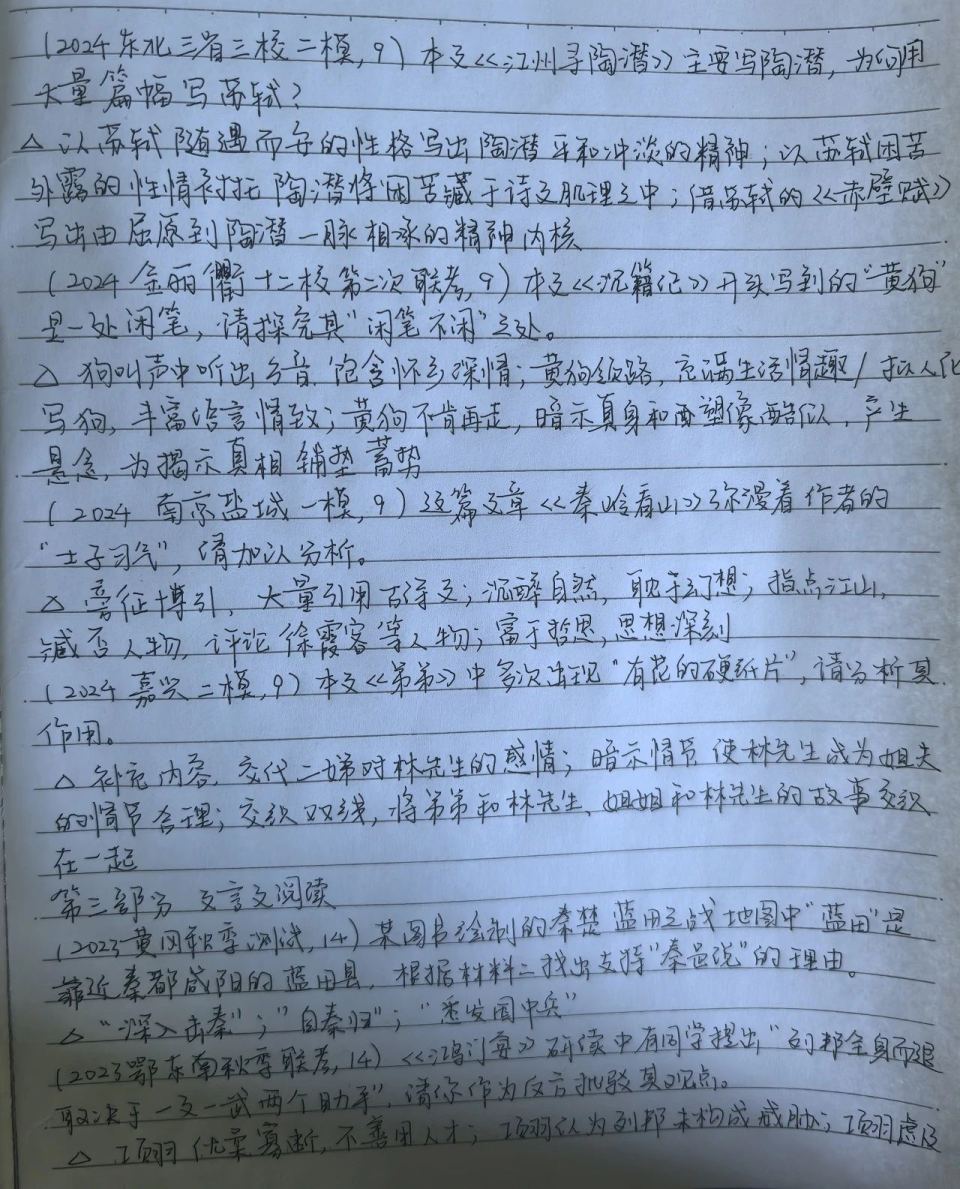 (2024东北三省三校二模,9)本文《江州寻陶潜》主要写陶潜,为何用
大量篇幅写苏轼?
△ 以苏轼随遇而安的性格写出陶潜平和冲淡的精神;以苏轼困苦
外露的性情衬托陶潜将困苦藏于诗文肌理之中;借苏轼的《赤壁赋》
写出由屈原到陶潜一脉相承的精神内核
(2024金丽衢十二校第二次联考,9)本文《沉籍记》开头写到的“黄狗”
是一处闲笔,请探究其“闲笔不闲”之处。
△ 狗叫声中听出乡音,饱含怀乡深情;黄狗领路,充满生活情趣/拟人化
写狗,丰富语言情致;黄狗不肯再走,暗示真身和西塑像酷似,产生
悬念,为揭示真相铺垫蓄势
(2024南京盐城一模,9)这篇文章《秦岭看山》弥漫着作者的
“士子习气”,请加以分析。
△ 旁征博引,大量引用古诗文;沉醉自然,耽于幻想;指点江山,
臧否人物,评论徐霞客等人物;富于哲思,思想深刻
(2024嘉兴二模,9)本文《弟弟》中多次出现“有花的硬纸片”,请分析其
作用。
△ 补充内容,交代二娣对林先生的感情;暗示情节,使林先生成为姐夫
的情节合理;交织双线,将弟弟和林先生、姐姐和林先生的故事交织
在一起
第三部分 文言文阅读
(2023黄冈秋季测试,14)某图书绘制的秦楚蓝田之战地图中“蓝田”是
靠近秦都咸阳的蓝田县,根据材料二找出支持“秦岳说”的理由。
△ “深入击秦”;“自秦归”;“悉发国中兵”
(2023鄂东南秋季联考,14)《鸿门宴》研读中有同学提出“刘邦全身而退
取决于一文一武两个助手”,请你作为反方批驳其观点。
△ 项羽优柔寡断,不善用人才;项羽认为刘邦未构成威胁;项羽虑及